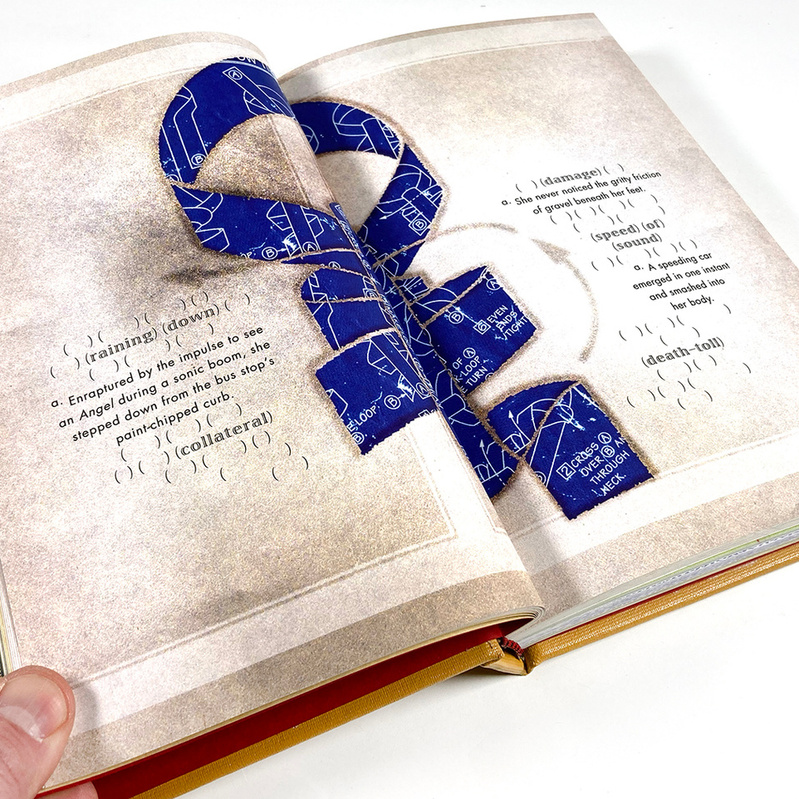 (   ) (   ) (   ) (   )
(   ) (raining) (down) (   )
(   ) (   ) (   ) (   )
a. Enraptured by the impulse to see
an Angel during a sonic boom, she
stepped down from the bus stop's
paint-chipped curb.
(   ) (   ) (   )
(   ) (collateral)
(   ) (   ) (   ) (   ) (   )
(   ) (damage) (   )
a. She never noticed the gritty friction
of gravel beneath her feet.
(   ) (   ) (   ) (   )
(speed) (of)
(sound)
(   ) (   ) (   ) (   )
a. A speeding car
emerged in one instant
and smashed into
her body.
(   ) (   ) (   )
(death-toll)
(   ) (   ) (   ) (   )
A
B
B
A
LOOP.
A
B
LOOP.
B
6 EVEN
ENDS
TIGHT
OF A
LOOP
TURN
2 CROSS A
OVER B AN
THROUGH
NECK.